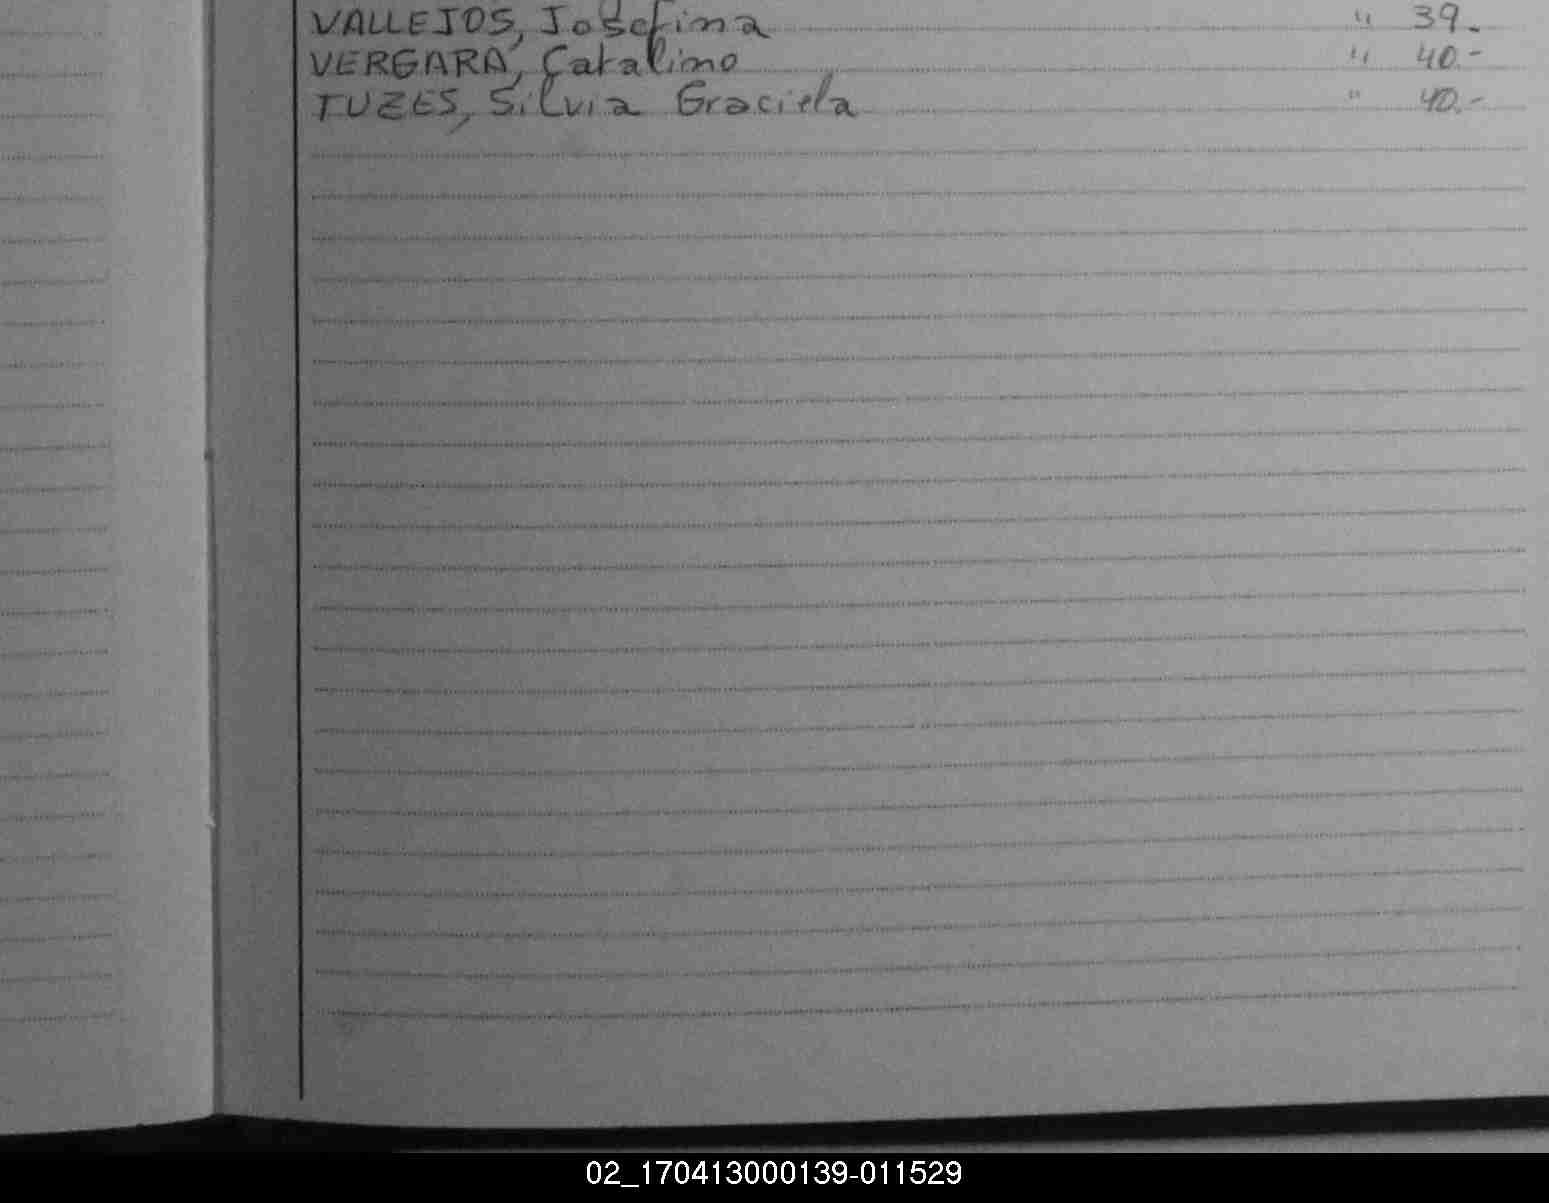 VALLEJOS, Josefina " 39.-
VERGARA, Catalino " 40.-
TUZES, Silvia Graciela " 40.-
02_170413000139-011529